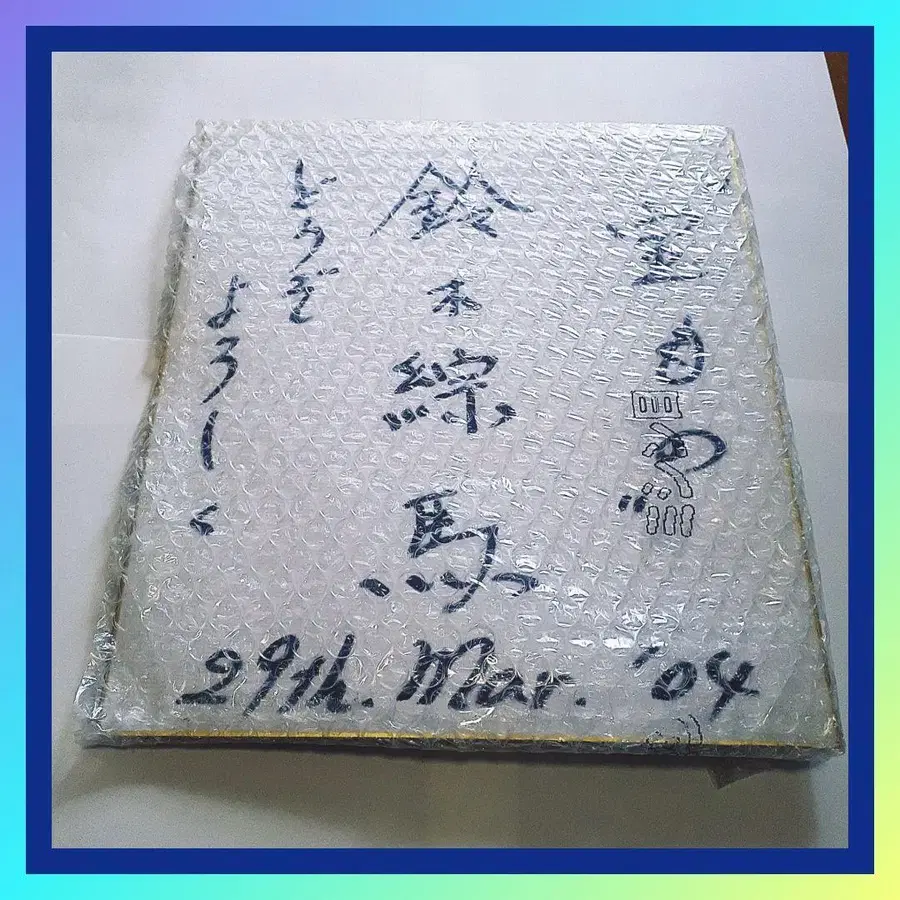 鈴木綜馬
どうぞ
よろしく
29th. Mar. '04